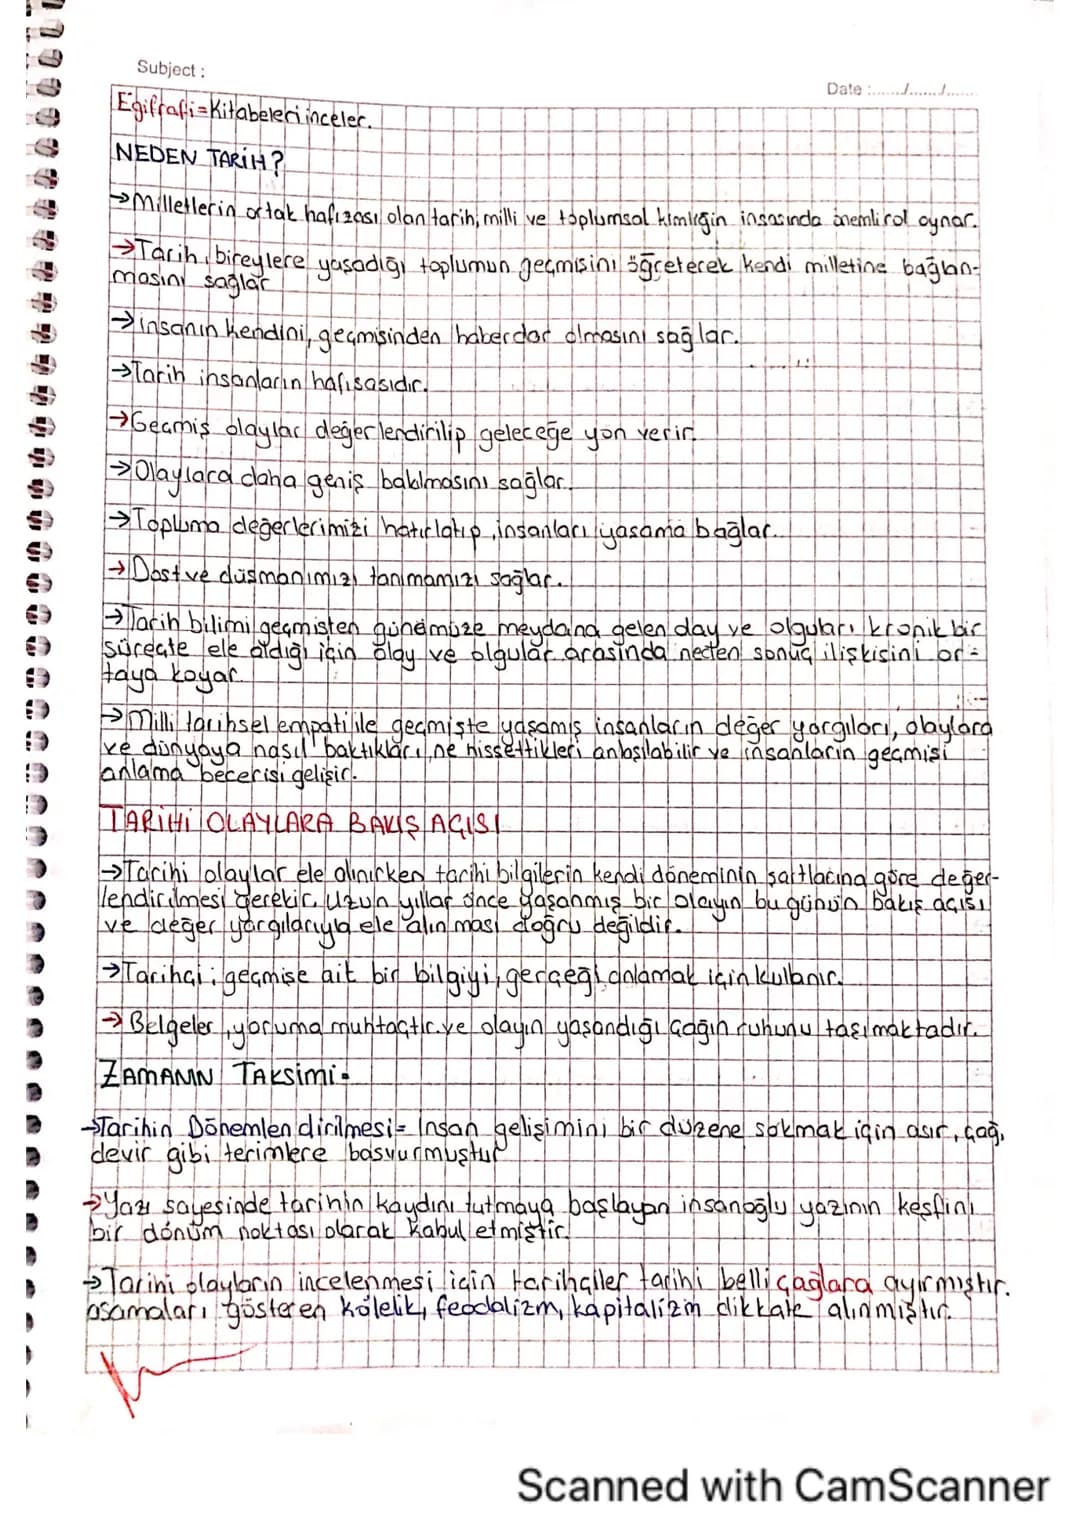 Subject :
Date :......./......./.......
Egifrafi=Kitabeleri inceler.
NEDEN TARİH?
→Milletlerin ortak hafızası olan tarih, milli ve toplumsal kimliğin inşasında önemli rol oynar.
→Tarih, bireylere yaşadığı toplumun geçmişini öğreterek kendi milletine bağlan-
masını sağlar
→insanın kendini, geçmisinden haberdar olmasını sağlar.
→Tarih insanların hafısasıdır.
→Geçmiş olaylar değerlendirilip geleceğe yön verir.
→Olaylara daha geniş bakılmasını sağlar.
→Topluma değerlerimizi hatırlatıp, insanları yaşama bağlar.
→Dost ve düşmanımızı tanımamızı sağlar.
→Tarih bilimi geçmişten günümüze meydana gelen olay ve olguları kronik bir
süreçte ele aldığı için olay ve olgular arasında neden sonuç ilişkisini or-
taya koyar
→Milli tarihsel empati ile geçmişte yaşamış insanların değer yargıları, olaylara
ve dünyaya nasıl baktıkları, ne hissettikleri anlaşılabilir ve insanların geçmişi
anlama becerisi gelişir.
TARİHİ OLAYLARA BAKIŞ AÇISI
→Tarihi olaylar ele alınırken tarihi bilgilerin kendi döneminin şartlarına göre değer-
lendirilmesi gerekir. Uzun yıllar önce yaşanmış bir olayın bu günün bakış açısı
ve değer yargılarıyla ele alınması doğru değildir.
→Tarihçi; geçmişe ait bir bilgiyi, gerçeği anlamak için kullanır.
→Belgeler, yoruma muhtaçtır. ve olayın yaşandığı çağın ruhunu taşımaktadır.
ZAMANIN TAKSİMİ-
→Tarihin Dönemlendirilmesi= İnsan gelişimini bir düzene sokmak için asır, çağ,
devir gibi terimlere başvurmuştur
→Yazı sayesinde tarihin kaydını tutmaya başlayan insanoğlu yazının keşfini
bir dönüm noktası olarak kabul etmiştir.
→Tarihi olayların incelenmesi için tarihçiler tarihi belli çağlara ayırmıştır.
aşamaları gösteren kölelik, feodalizm, kapitalizm dikkate alınmıştır.
Scanned with CamScanner